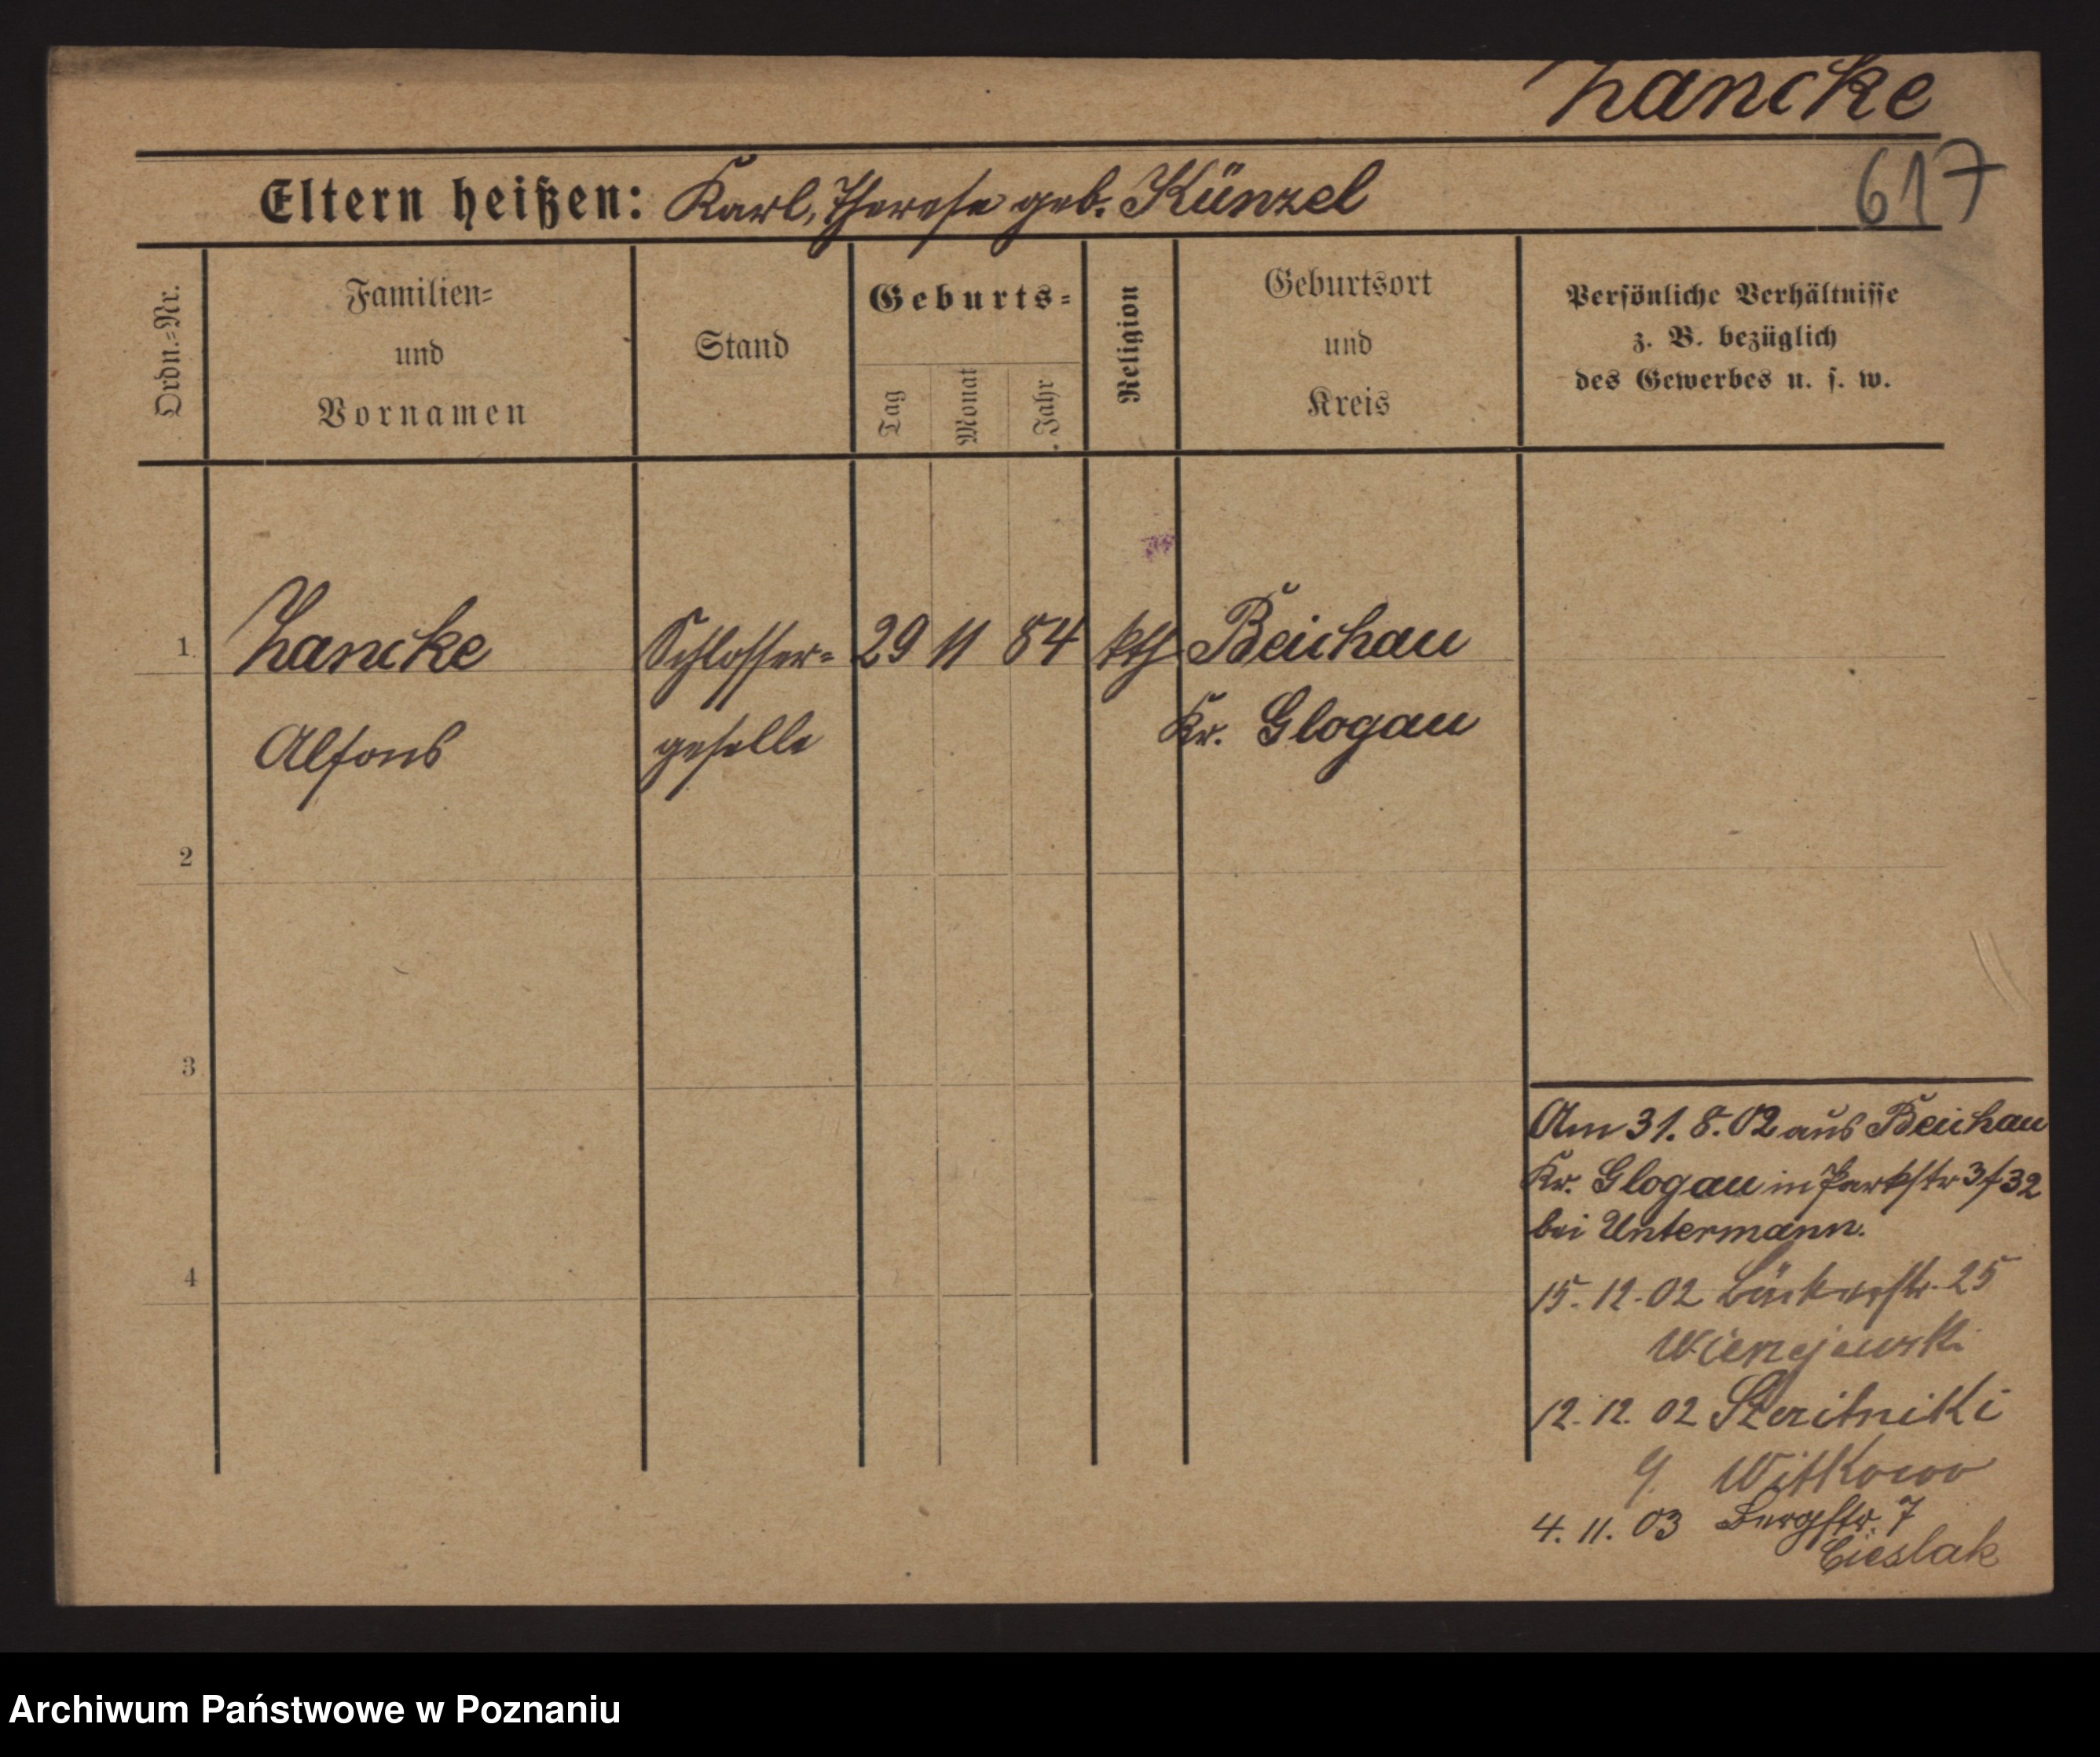 Hancke
617
Eltern heißen: Karl, Therese geb. Künzel
Ordn.=Nr.
Familien=
und
Vornamen
Stand
Geburts=
Tag
Monat
Jahr
Religion
Geburtsort
und
Kreis
Persönliche Verhältnisse
z. B. bezüglich
des Gewerbes u. s. w.
1 Hancke Schlosser= 29 11 84 kth Beichau
Alfons geselle Kr. Glogau
2
3
4
Am 31.8.02 aus Beichau
Kr. Glogau in Parkstr
bei Untermann.
15.12.02 Bäckerstr. 25
Wierzejewski
12.12.02
Witkowo
4.11.03 Bergstr. 7
Cieslak
Archiwum Państwowe w Poznaniu